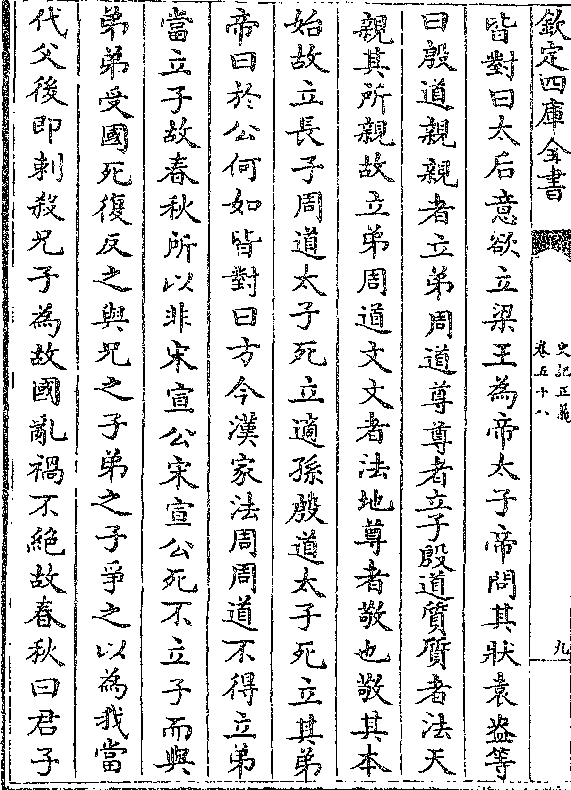 欽定四庫全書
史記正義
卷五十八
九
皆對曰太后意欲立梁王為帝太子帝問其狀袁盎等
曰殷道親親者立弟周道尊尊者立子殷道質質者法天
親其所親故立弟周道文文者法地尊者敬也敬其本
始故立長子周道太子死立適孫殷道太子死立其弟
帝曰於公何如皆對曰方今漢家法周周道不得立弟
當立子故春秋所以非宋宣公宋宣公死不立子而與
弟弟受國死復反之與兄之子弟之子爭之以為我當
代父後即刺殺兄子為故國亂禍不絕故春秋曰君子